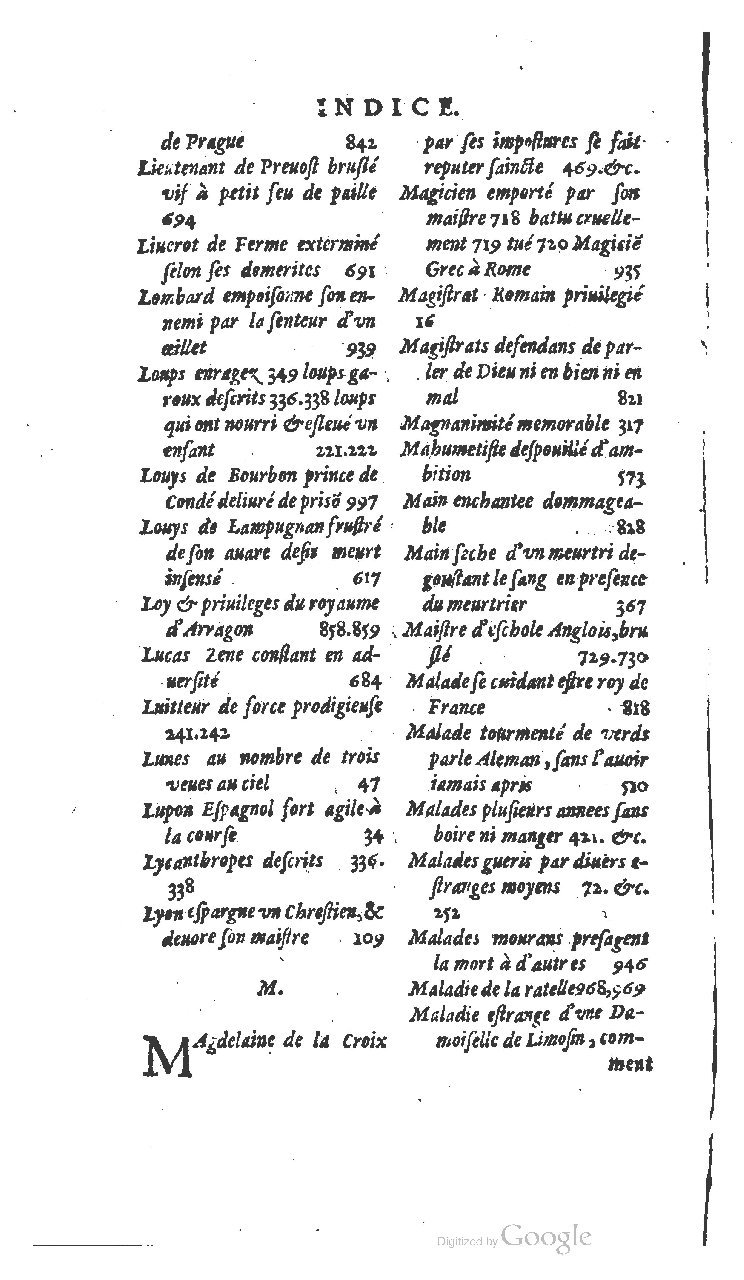 INDICE.
de Prague 842
Lieutenant de Preuoſt bruſlé
vif à petit feu de paille
694
Liucrot de Ferme exterminé
ſelon ſes demerites 691
Lombard empoiſonne ſon en-
nemi par la ſenteur d'vn
œillet 939
Loups enragez 349 loups ga-
roux deſcrits 336.338 loups
qui ont nourri & eſleué vn
enfant 221.222
Louys de Bourbon prince de
Condé deliuré de priſõ 997
Louys de Lampugnan fruſtré
de ſon auare deſir meurt
inſensé 617
Loy & priuileges du royaume
d'Arragon 858.859
Lucas Zene conſtant en ad-
uerſité 684
Luitteur de force prodigieuſe
241.242
Lunes au nombre de trois
veues au ciel 47
Lupon Eſpagnol fort agile à
la courſe 34
Lycanthropes deſcrits 336.
338
Lyon eſpargne vn Chreſtien, &
deuore ſon maiſtre 109
M.
MAgdelaine de la Croix
par ſes impoſtures ſe fait
reputer ſaincte 469.&c.
Magicien emporté par ſon
maiſtre 718 battu cruelle-
ment 719 tué 720 Magiciẽ
Grec à Rome 935
Magiſtrat Romain priuilegié
16
Magiſtrats defendans de par-
ler de Dieu ni en bien ni en
mal 821
Magnanimité memorable 317
Mahumetiſte deſpouillé d'am-
bition 573
Main enchantee dommagea-
ble 828
Main ſeche d'vn meurtri de-
gouſtant le ſang en preſence
du meurtrier 367
Maiſtre d'eſchole Anglois, bru
ſlé 729.730
Malade ſe cuidant eſtre roy de
France 818
Malade tourmenté de verds
parle Aleman, ſans l'auoir
iamais apris 510
Malades pluſieurs annees ſans
boire ni manger 421. &c.
Malades gueris par diuers e-
ſtranges moyens 72. &c.
252
Malades mourans preſagent
la mort à d'autres 946
Maladie de la ratelle 968,969
Maladie eſtrange d'vne Da-
moiſelle de Limoſin, com-
ment
Digitized by Google